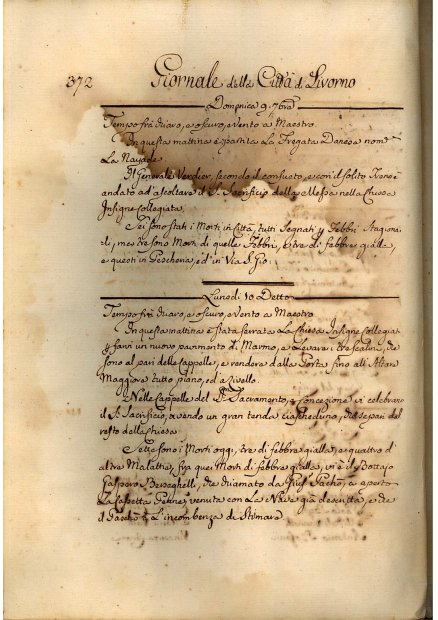 372 Giornale della Città di Livorno
Domenica 9. 7bre
Tempo frà chiaro, e oscuro, e Vento a Maestro.
In questa mattina è partita La Fregata Danese nom
La Nayade
Il Generale Verdier, secondo il consueto, e con il solito Tren è
andato ad ascoltare il S. Sacrifizio della Messa nella Chiesa
Insigne Collegiata
Sei sono stati i Morti in Città, tutti Segnati p Febbri Stagiona
li, ma tre sono Morti di quelle Febbri, e tre di febbre gialla,
e questi in Pescheria, ed in Via S. Gio:
Lunedì 10 Detto
Tempo frà chiaro, e oscuro, e Vento a Maestro
In questa mattina è stata serrata La Chiesa Insigne Collegia
p farvi un nuovo pavimento di Marmo, e Levare i tre scalini, che
sono al pari delle Cappelle, e rendere dalla Porta fino all'Altare
Maggiore tutto piano, ed a Livello.
Nelle Cappelle del SS. Sacramento, e Concezione vi celebrano
il S. Sacrifizio, avendo un gran tenda ciascheduno, di separi dal
resto della Chiesa.
Sette sono i Morti oggi, tre di febbre gialla, e quattro d'
altre Malattie, fra quei Morti di febbre gialla, vi è il Bottajo
Gaspero Bisseghelli, che chiamato da
La Cassetta venuta con La Nave già descritta, e che
il L'incombenza di Stimare